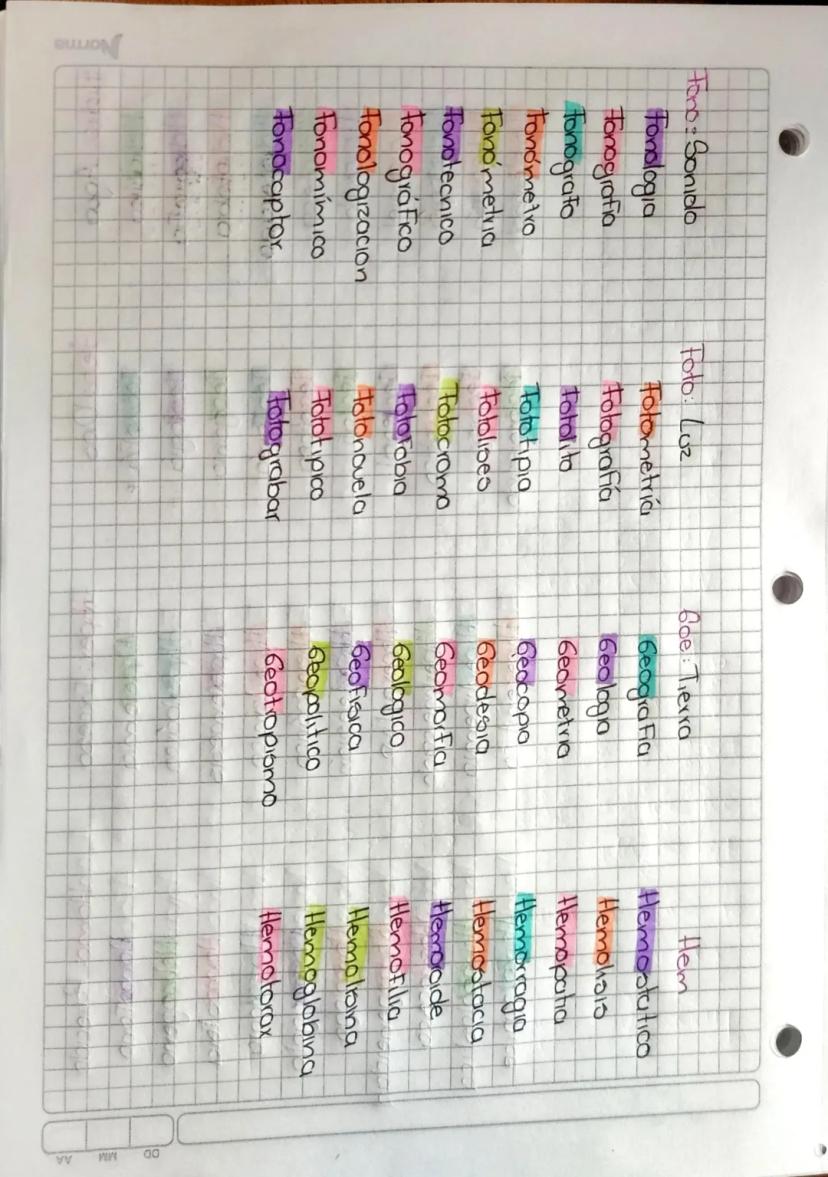 Fono: Sonido
Fonologia
Fonografia
Fonografo
Fonómetro
Fonómetria
Fonotecnico
Fonográfico
Fonologizacion
Fonomímico
Fonocaptor
Foto: Luz
Fotometriá
Fotografiá
Fotolito
Fototipia
Fotolises
Fotocromo
Fotofobia
Fotonovela
Fototipico
Fotograbar
Goe: Tierra
Geografia
Geologia
Geometria
Geocopo
Geodesia
Geomorfia
Geologico
Geofisica
Geopolitico
Geotropismo
Hem
Hemostatico
Hemolisis
Hemopatia
Hemorragia
Hemostacia
Hemoroide
Hemofilia
Hemolisina
Hemoglobina
Hemotorax
Norma
DD MM AA